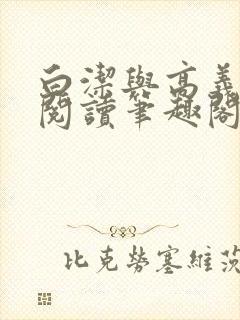 白潔與高義
閱讀筆趣閣
比克勞塞維茨